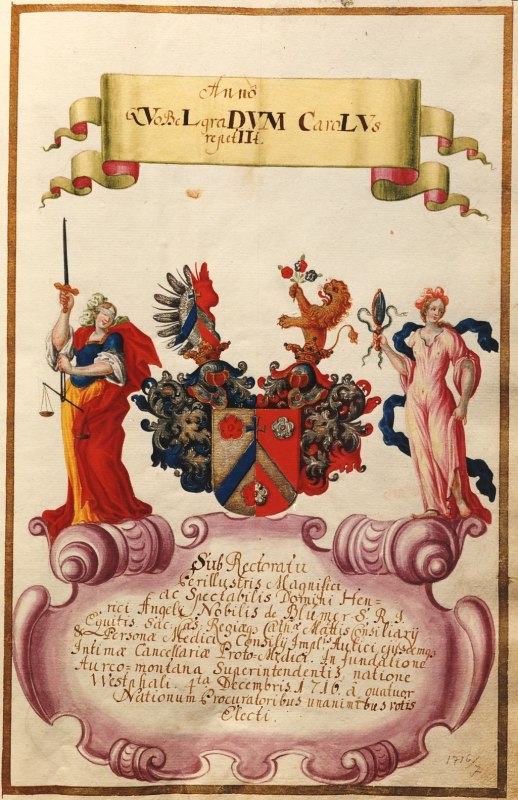 Anno
QVo BeLgraDVM CaroLVs
repetIIt.
Sub Rectoratu
Perillustris Magnifici
ac Spectabilis Domini Hen-
rici Angeli Nobilis de Blumer S. R. I.
Equitis Sac: Cæs: Regiæq Cathæ Mattis Consiliarij
& Persona Medica Consilij Implis Aulici ejusdemqs
Intimæ Cancellariæ Proto-Medici. In fundatione
Aureo-montana Superintendentis, natione
Westphali. 4ta Decembris 1716. à quatuor
Nationum Procuratoribus unanimibus votis
Electi.
1716/7